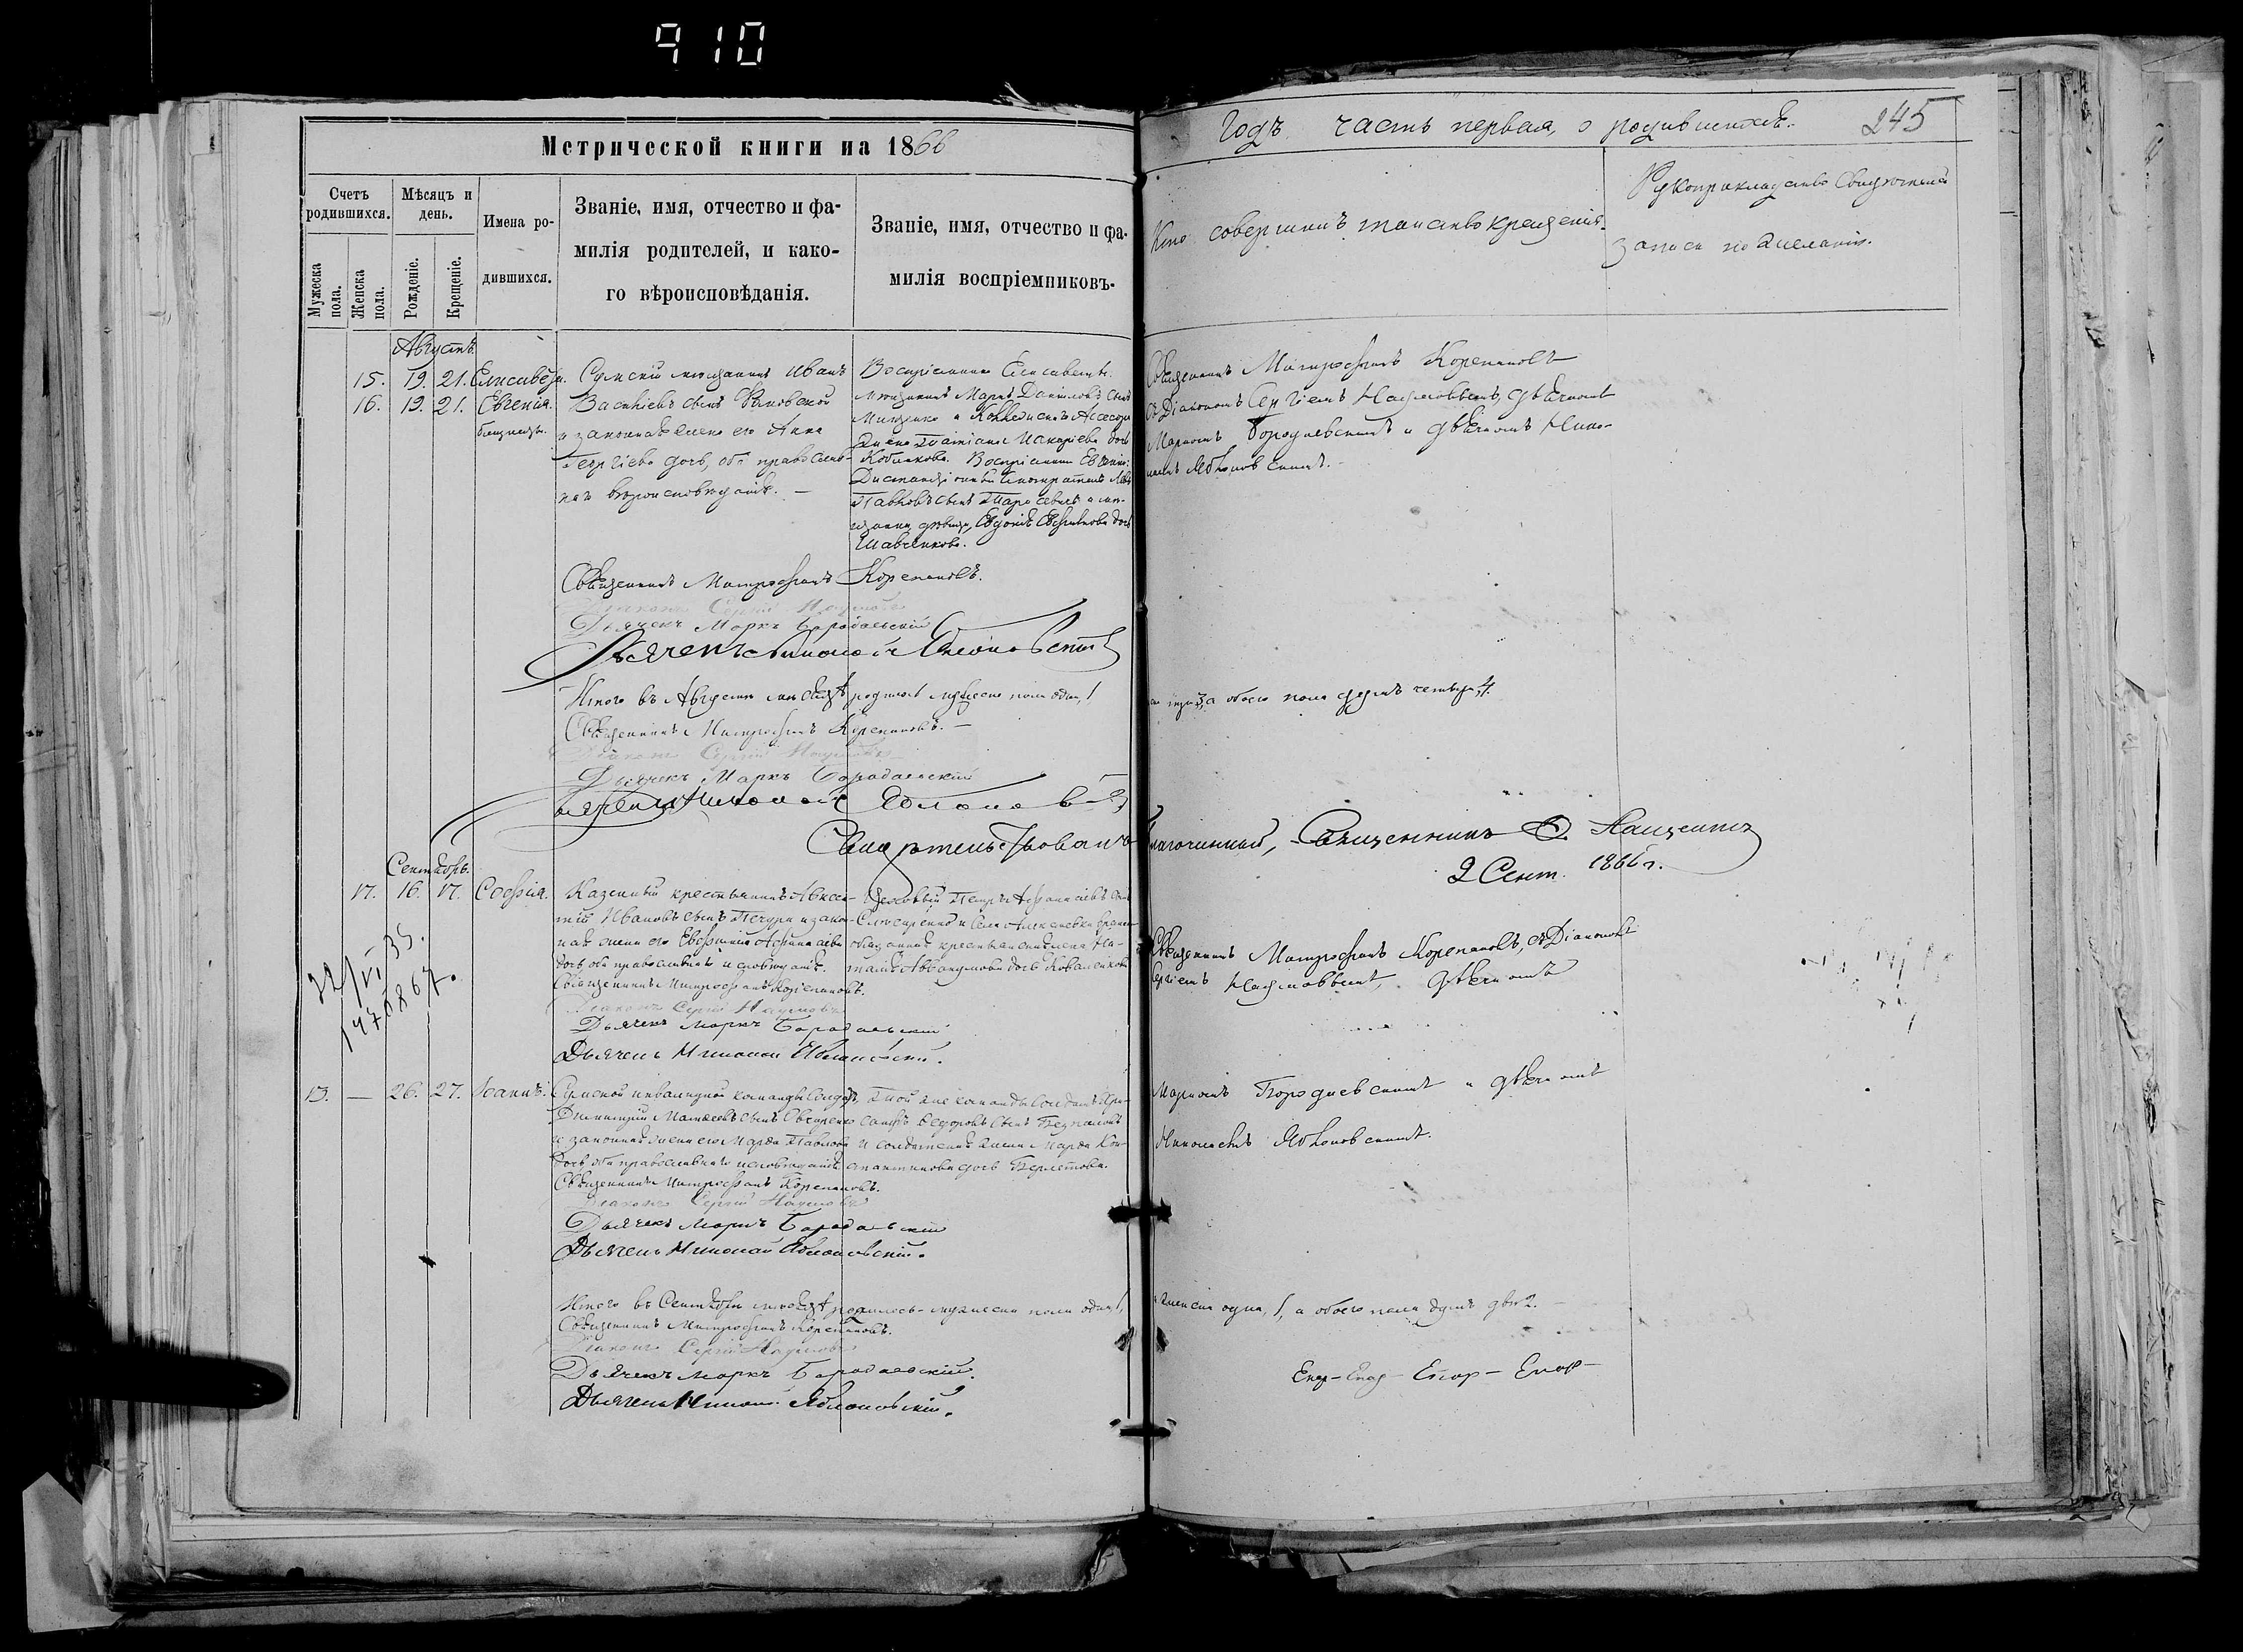 910
Метрической книги на 1866
Годъ часть первая, о родившихся.
245
Счетъ родившихся.
Мѣсяцъ и день.
Имена родившихся.
Званіе, имя, отчество и фа-
милія родителей, и како-
го вѣроисповѣданія.
Званіе, имя, отчество и фа-
милія воспріемниковъ.
Кто совершилъ таинство крещенія.
Рукоприкладство свидѣтелей
записи по желанію.
Мужеска пола.
Женска пола.
Рожденіе.
Крещеніе.
Августъ.
15. 19. 21. Елисавета.
16. 19. 21. Евгенія.
близнецы.
Сумскій мѣщанинъ Иванъ
Василіевъ сынъ
и законная жена его Анна
Георгіева дочь, оба православ-
наго вѣроисповѣданія.
Воспріемники Елисаветы:
мѣщанинъ Маркъ Даніиловъ сынъ
Мищенко и Коллежскаго Асесора
жена Татіана Макаріева дочь
Воспріемники Евгеніи:
Павловъ сынъ Тарасевичъ и мѣ-
щанка дѣвица Евдокія дочь
Шавченкова.
Священникъ Митрофанъ Корепановъ
съ Діакономъ Сергіемъ Наумовымъ, дьячкомъ
Маркомъ Бородаевскимъ и дьячкомъ Нико-
лаемъ Яблоновскимъ.
Священникъ Митрофанъ Корепановъ.
Діаконъ Сергій Наумовъ
Дьячекъ Маркъ Бородаевскій
Дьячекъ Николай Яблоновскій
Итого въ Августѣ мѣсяцѣ родилось мужеска пола одинъ, 1
три, 3, а обоего пола душъ четыре, 4.
Священникъ Митрофанъ Корепановъ.
Діаконъ Сергій Наумовъ
Дьячекъ Маркъ Бородаевскій
Дьячекъ Николай Яблоновскій
Свидѣтельствовалъ Благочинный, Священникъ
2 Сент. 1866 г.
Сентябрь.
17. 16. 17. Софія.
Казенный крестьянинъ Авксен-
тій Ивановъ сынъ Печура и закон-
ная жена его Евфимія Афанасіева
дочь, оба православнаго исповѣданія.
Цеховый Петръ Афанасіевъ сынъ
Слюсаренко и села Алексѣевки времен-
обязаннаго крестьянина жена На-
талія Аввакумова дочь Коваленкова
Священникъ Митрофанъ Корепановъ, съ Діакономъ
Сергіемъ Наумовымъ, дьячкомъ
Священникъ Митрофанъ Корепановъ.
Діаконъ Сергій Наумовъ
Дьячекъ Маркъ Бородаевскій
Дьячекъ Николай Яблоновскій.
22/VI 35.
13. — 26. 27. Іоаннъ.
Сумской инвалидной команды солдатъ
Димитрій Матвеевъ сынъ Овчаренко
и законная жена его Марѳа Павлова
дочь, оба православнаго исповѣданія.
Той же команды солдатъ
Ѳедоровъ сынъ
и солдатская жена Марѳа Кон-
стантинова дочь
Маркомъ Бородаевскимъ и дьячкомъ
Николаемъ Яблоновскимъ.
Священникъ Митрофанъ Корепановъ.
Діаконъ Сергій Наумовъ
Дьячекъ Маркъ Бородаевскій
Дьячекъ Николай Яблоновскій.
Итого въ Сентябрѣ мѣсяцѣ родилось мужеска пола одинъ, 1,
женска одна, 1, а обоего пола душъ двѣ 2.
Священникъ Митрофанъ Корепановъ.
Діаконъ Сергій Наумовъ
Дьячекъ Маркъ Бородаевскій.
Дьячекъ Никола. Яблоновскій.